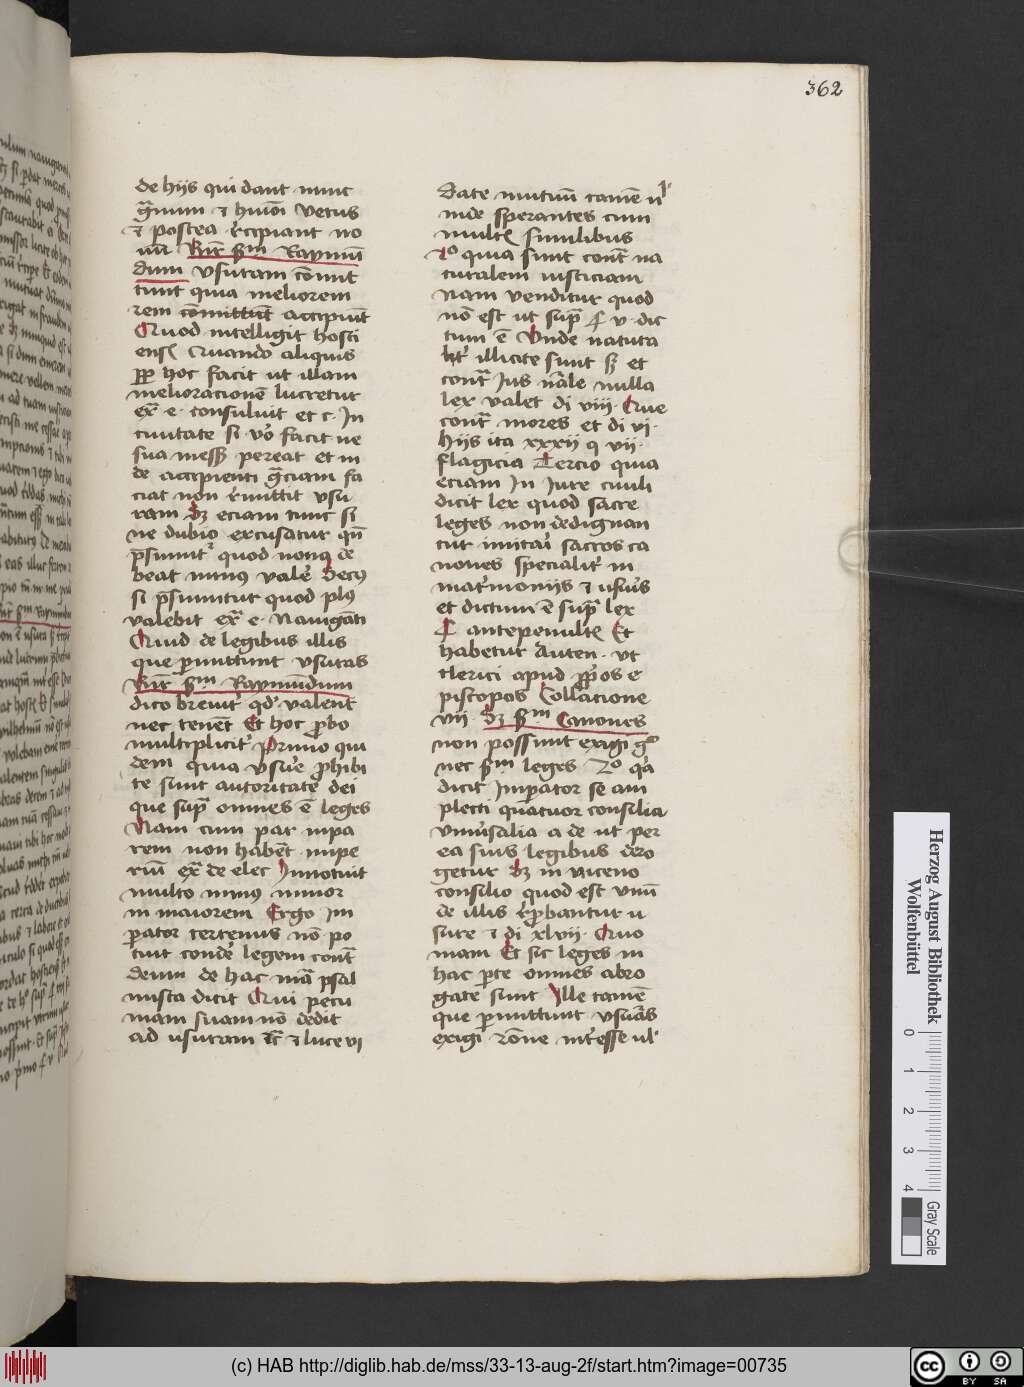 362
de hijs qui dant nunc
gͣnum ⁊ humōi vetus
⁊ postea recipiant no
uū Rn̄t ẜm Raymū
dum vsuram cōmit
tunt quia meliorem
rem cōmittūt accipiūt
Quod intelligit hosti
ens̄ Quando aliquis
ꝓꝑ hoc facit ut illam
melioracionē lucretur
ex̄ e · consuluit et c · In
ciuitate si v̄o facit ne
sua mess̄ pereat et in
de accipienti gͣciam fa
ciat non remittit vsu
ram Sꝫ eciam tunc si
ne dubio excusatur qn̄
p̄sumit̄ quod nonꝰ de
beat minꝰ vale᷑ Secꝰ
si p̄sumitur quod plꝰ
valebit ex̄ e · Nauigāti
Quid de legibus illis
que ꝑmittunt vsuras
Rn̄t ẜm Raymūdum
dico breuit᷑ qd᷑ valent
nec tenēt Et hoc ꝓbo
multiplicit᷑ Primo qui
dem quia vsure ꝓhibi
te sunt autoritate dei
que supͣ omnes ē leges
Nam cum par in pa
rem non habēt impe
riū ex̄ de elec Innotuit
multo minꝰ minor
in maiorem Ergo im
ꝑator terrenus nō po
tuit conde᷑ legem contͣ
deum de hac mͣ psal
mista dicit Qui pecu
niam suam nō dedit
ad usuram ⁊ luce vi
date mutuū tamē nl᷑
inde sperantes cum
mult̄ similibus
2o quia sunt contͣ na
turalem iusticiam
Nam venditur quod
nō est ut supͣ ¶ v · dic
tum ē Vnde natura
lit᷑ illicite sunt sꝫ et
contͣ Ius nͣale nulla
lex valet di viii · Que
contͣ mores et di vi ·
hijs ita xxxii q vii ·
flagicia Tercio quia
eciam In Iure ciuili
dicit lex quod sacre
leges non dedignan
tur imitari sacros ca
nones specialit᷑ in
mat᷑moniis ⁊ usur̄s
et dictum ē supͣ lex
¶ antepenult̄ Et
habetur Auten · vt
clerici apud ꝓp̄os e
piscopos Collacione
vii · Sꝫ ẜm Canones
non possunt exigi gͦ
nec ẜm leges 2o qͣ
dicit Imꝑator se am
plecti quatuor consilia
vniu᷑salia a de ut per
ea suis legibus dero
getur Sꝫ in niceno
consilio quod est vnū
de illis reꝓbantur u
sure ⁊ di xlvii · Quo
niam Et sic leges in
hac ꝑte omnes abro
gate sunt Ille tamē
que ꝑmittunt vsuras
exigi rōne int᷑esse ul᷑
Herzog August Bibliothek
Wolfenbüttel
0 1 2 3 4
Gray Scale
(c) HAB http://diglib.hab.de/mss/33-13-aug-2f/start.htm?image=00735
cc BY SA